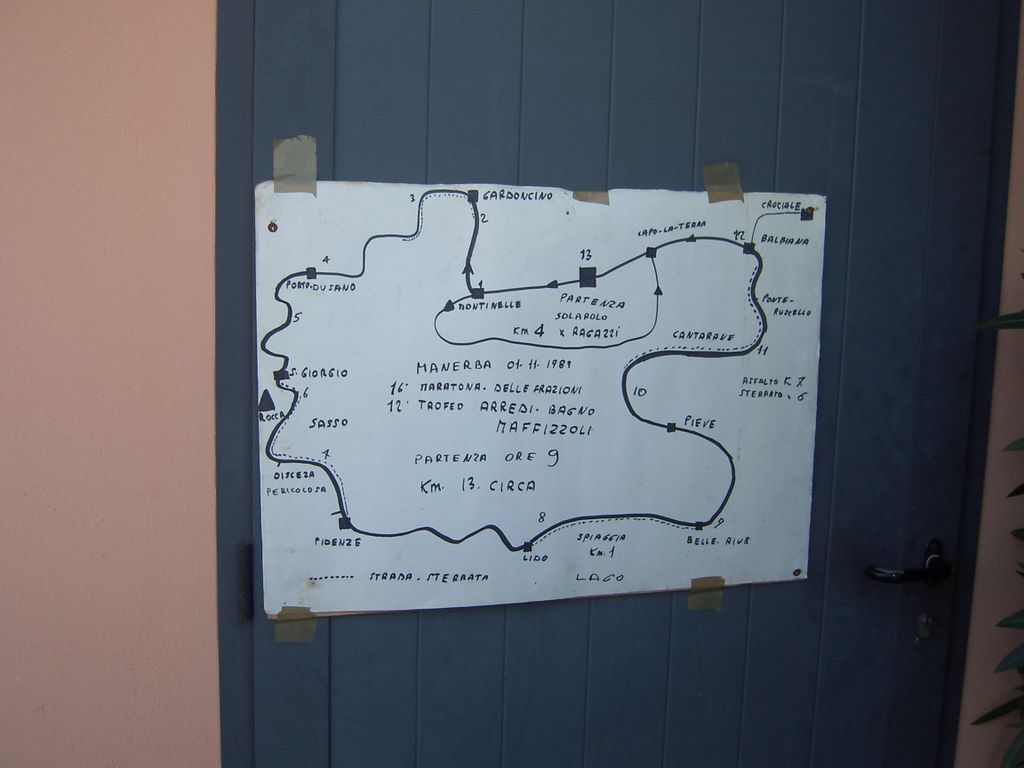 3
GARDONCINO
2
CROCIALE
CAPO-LA-TERRA
12
BALBIANA
4
13
PORTO-DUSANO
1
MONTINELLE
PARTENZA
SOLAROLO
KM 4 x RAGAZZI
PONTE-
RUSCELLO
5
CANTARANE
11
MANERBA 01-11-1989
S. GIORGIO
16° MARATONA-DELLE FRAZIONI
10
ASFALTO K 7
STERRATO " 6
6
ROCCA
12° TROFEO ARREDI-BAGNO
MAFFIZZOLI
SASSO
PIEVE
7
PARTENZA ORE 9
DISCESA
PERICOLOSA
KM. 13. CIRCA
8
9
PIDENZE
SPIAGGIA
KM. 1
BELLE-RIVE
LIDO
STRADA-STERRATA
LAGO